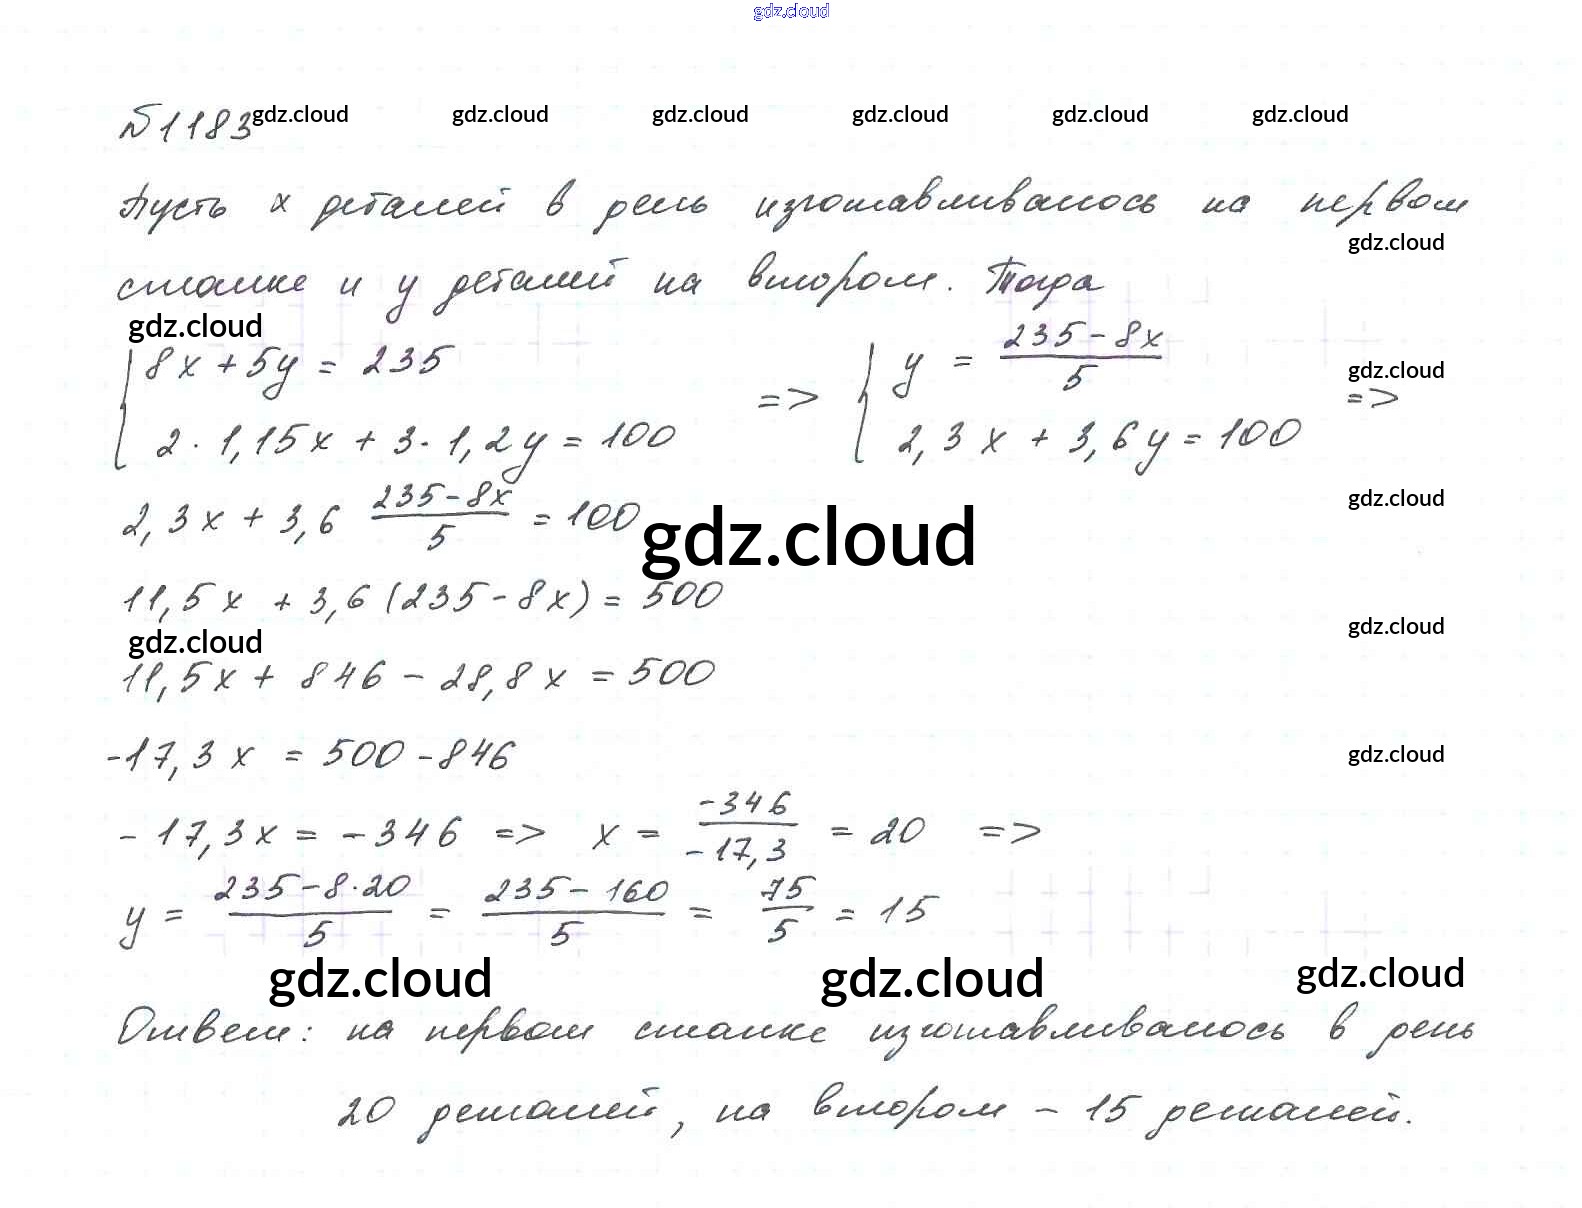 gdz.cloud
№1183 gdz.cloud gdz.cloud gdz.cloud gdz.cloud gdz.cloud gdz.cloud
Пусть x деталей в день изготавливалось на первом
gdz.cloud
станке и y деталей на втором. Тогда
gdz.cloud
{ 8x + 5y = 235
2 · 1,15x + 3 · 1,2y = 100 => { y = (235 - 8x)/5
2,3x + 3,6y = 100 =>
gdz.cloud
gdz.cloud
2,3x + 3,6 (235 - 8x)/5 = 100
gdz.cloud
11,5x + 3,6(235 - 8x) = 500
gdz.cloud
gdz.cloud
11,5x + 846 - 28,8x = 500
-17,3x = 500 - 846
gdz.cloud
-17,3x = -346 => x = -346/-17,3 = 20 =>
y = (235 - 8·20)/5 = (235 - 160)/5 = 75/5 = 15
gdz.cloud gdz.cloud gdz.cloud
Ответ: на первом станке изготавливалось в день
20 деталей, на втором - 15 деталей.